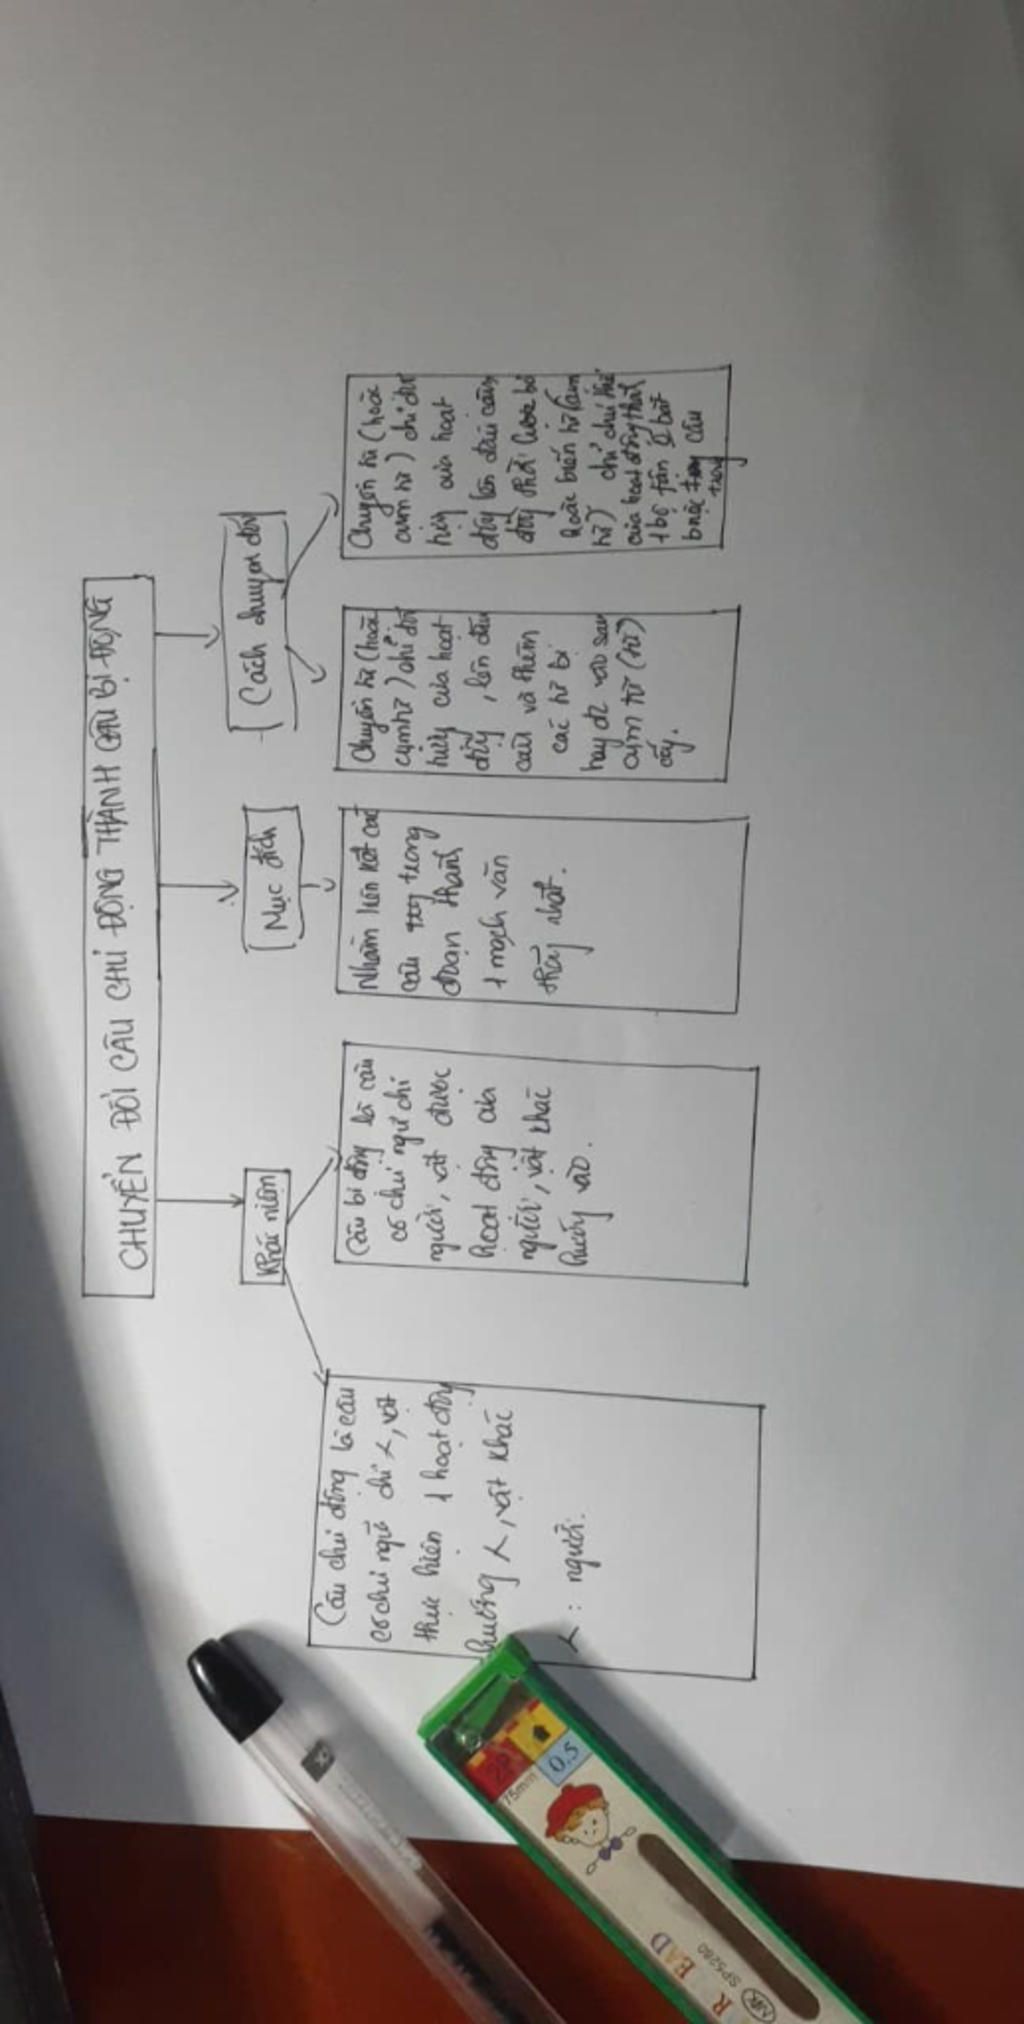 CHUYỂN ĐỔI CÂU CHỦ ĐỘNG THÀNH CÂU BỊ ĐỘNG
Khái niệm
Mục đích
Cách chuyển đổi
Câu chủ động là câu
có chủ ngữ chỉ 人, vật
thực hiện 1 hoạt động
hướng 人, vật khác
人: người.
Câu bị động là câu
có chủ ngữ chỉ
người, vật được
hoạt động của
người, vật khác
hướng vào.
Nhằm liên kết các
câu trong
đoạn thành
1 mạch văn
thống nhất.
Chuyển từ (hoặc
cụm từ) chỉ đối
tượng của hoạt
động, lên đầu
câu và thêm
các từ bị
hay đc vào sau
cụm từ (từ)
ấy.
Chuyển từ (hoặc
cụm từ) chỉ đối
tượng của hoạt
động lên đầu câu,
đồng thời lược bỏ
hoặc biến từ (cụm
từ) chỉ chủ thể
của hoạt động thành
1 bộ phận bắt
buộc trong câu
75mm
2B
0.5
EAD
SP5260